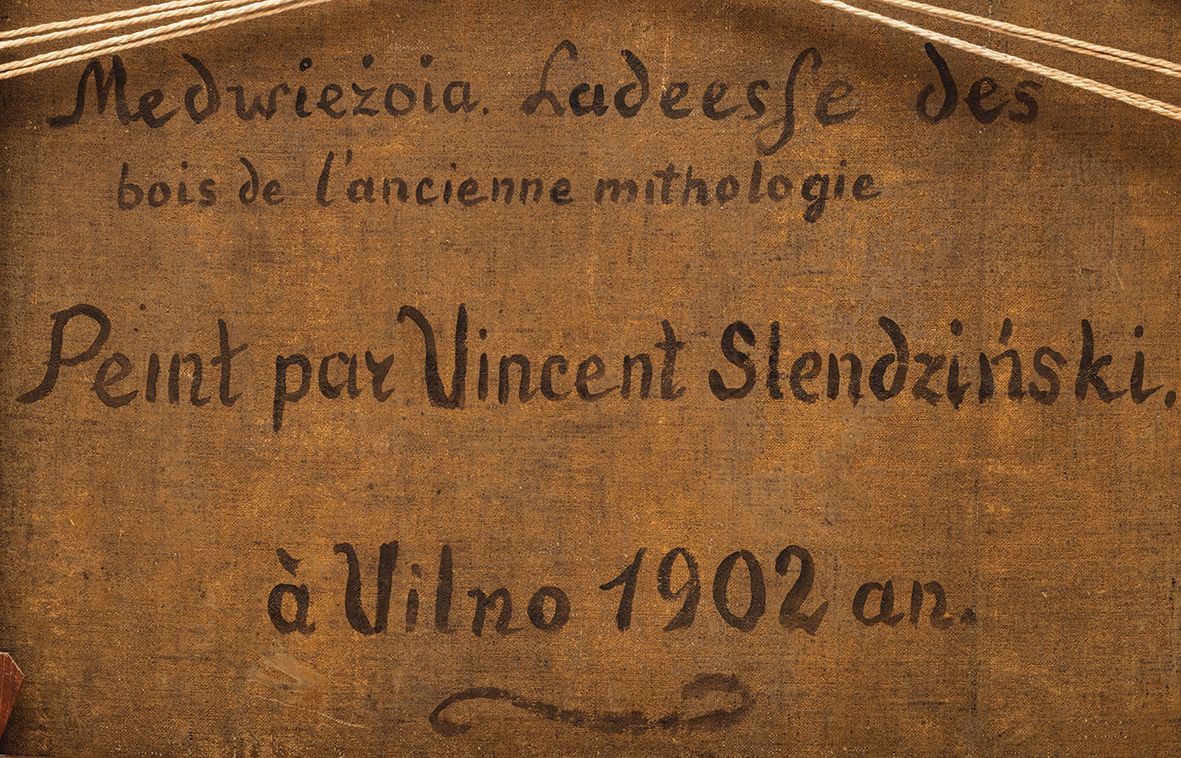 Medwieżoia. Ladeesse des
bois de l'ancienne mithologie
Peint par Vincent Slendziński.
à Vilno 1902 an.